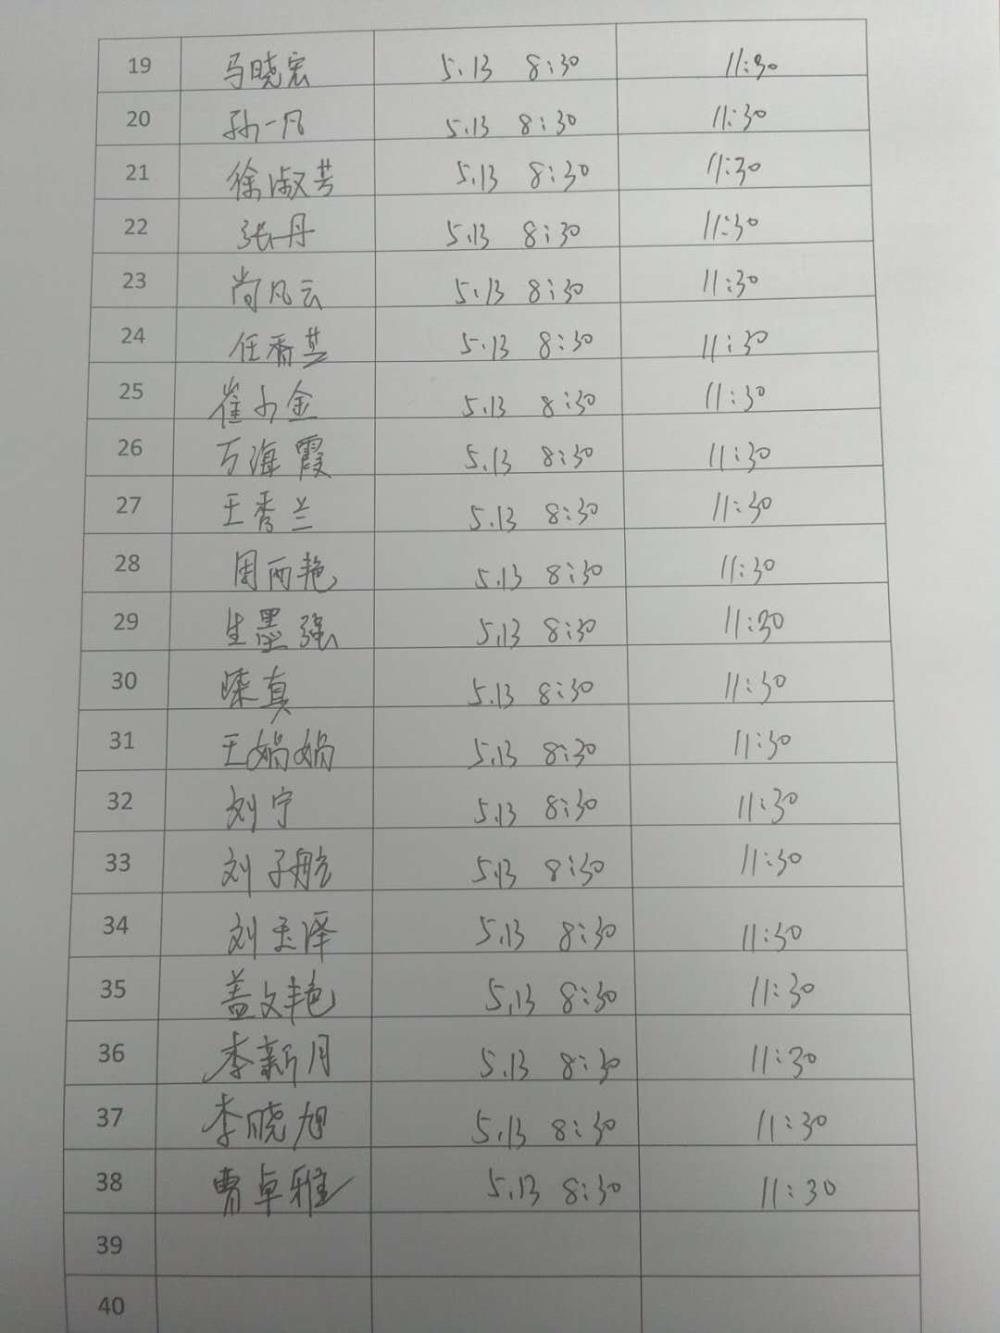 19 马晓宏 5.13 8:30 11:30
20 孙一凡 5.13 8:30 11:30
21 徐淑芳 5.13 8:30 11:30
22 张丹 5.13 8:30 11:30
23 尚凡云 5.13 8:30 11:30
24 任香芝 5.13 8:30 11:30
25 崔小金 5.13 8:30 11:30
26 万海霞 5.13 8:30 11:30
27 王秀兰 5.13 8:30 11:30
28 周丙艳 5.13 8:30 11:30
29 生墨强 5.13 8:30 11:30
30 真 5.13 8:30 11:30
31 王娟娟 5.13 8:30 11:30
32 刘宁 5.13 8:30 11:30
33 刘子航 5.13 8:30 11:30
34 刘玉泽 5.13 8:30 11:30
35 盖文艳 5.13 8:30 11:30
36 李新月 5.13 8:30 11:30
37 李晓旭 5.13 8:30 11:30
38 曹卓雅 5.13 8:30 11:30
39
40